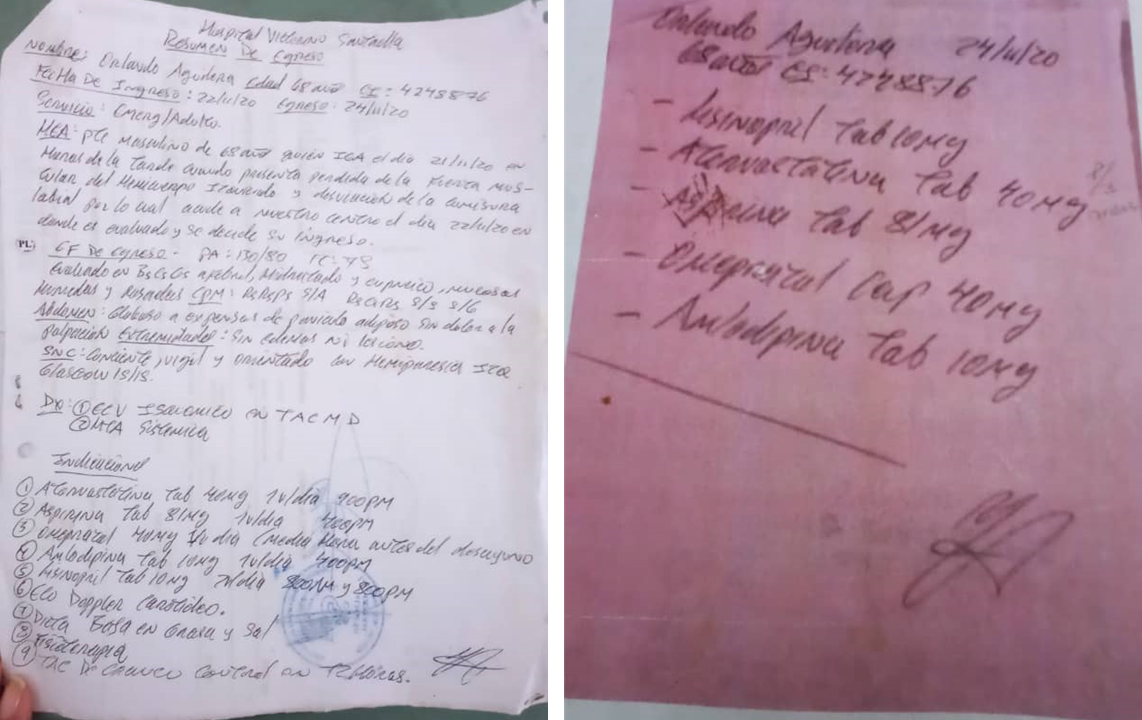 Hospital Victorino Santaella
Resumen De Egreso
Nombre: Orlando Aguilera Edad 68 años CI: 4248876
Fecha De Ingreso: 22/11/20 Egreso: 24/11/20
Servicio: Emerg/Adulto.
MEA: pte masculino de 68 años quien IEA el día 21/11/20 en
Horas de la tarde cuando presenta perdida de la fuerza mus-
cular del Hemicuerpo Izquierdo y desviación de la comisura
labial por lo cual acude a nuestro centro el día 22/11/20 en
donde es evaluado y se decide su ingreso.
EF De Egreso - PA: 130/80 FC: 78
Evaluado en afebril, Hidratado y eupneico, mucosas
humedas y Rosadas CPM: RsRsPs S/A RsCsRs S/S S/G
Abdomen: Globoso a expensas de paniculo adiposo sin dolor a la
palpación Extremidades: Sin edemas ni lesiones.
SNC: Conciente, vigil y orientado con Hemiparesia Izq
Glasgow 15/15.
Dx: ① ECV Isquemico en TACMD
② HTA Sistemica
Indicaciones
① Atorvastatina tab 40mg 1v/día 900PM
② Aspirina Tab 81mg 1v/día 400PM
③ Omeprazol 40mg 1v día (media Hora antes del desayuno
④ Amlodipina tab 10mg 1v/día 400PM
⑤ Lisinopril Tab 10mg 2v/día 800AM y 800PM
⑥ ECO Doppler Carotideo.
⑦ Dieta Baja en Grasa y Sal
⑧ Fisioterapia
⑨ TAC De Craneo Control en 72 Horas.
Orlando Aguilera 24/11/20
68 años CI: 4248876
- Lisinopril Tab 10mg
- Atorvastatina Tab 40mg
- Aspirina Tab 81mg
- Omeprazol Cap 40mg
- Amlodipina Tab 10mg